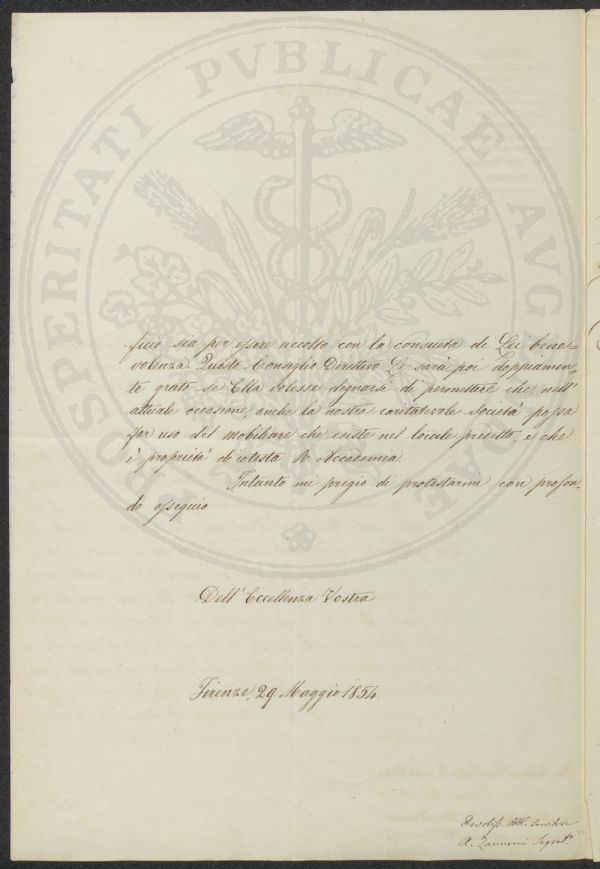 PROSPERITATI PVBLICAE AVGENDAE
ficio sia per essere accolto con la consueta di Lei bene=
volenza. Questo Consiglio Direttivo Le sarà poi doppiamen=
te grato se Ella volesse degnarsi di permettere che nell'
attuale occasione, anche la nostra caritatevole Società possa
far uso del mobiliare che esiste nel locale predetto, e che
è proprietà di cotesta R. Accademia.
Intanto mi pregio di protestarmi con profon=
do ossequio
Dell' Eccellenza Vostra
Firenze, 29 Maggio 1854.
Devotiss. Servitore
A. Zannoni Segret.